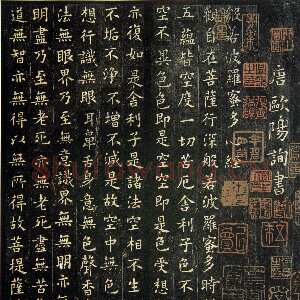 唐歐陽詢書
般若波羅蜜多心經
觀自在菩薩行深般若波羅蜜多時
五蘊皆空度一切苦厄舍利子色不
空不異色色即是空空即是色受想
亦復如是舍利子是諸法空相不生
不垢不淨不增不減是故空中無色
想行識無眼耳鼻舌身意無色聲香
法無眼界乃至無意識界無無明亦
明盡乃至無老死亦無老死盡無苦
道無智亦無得以無所得故菩提薩